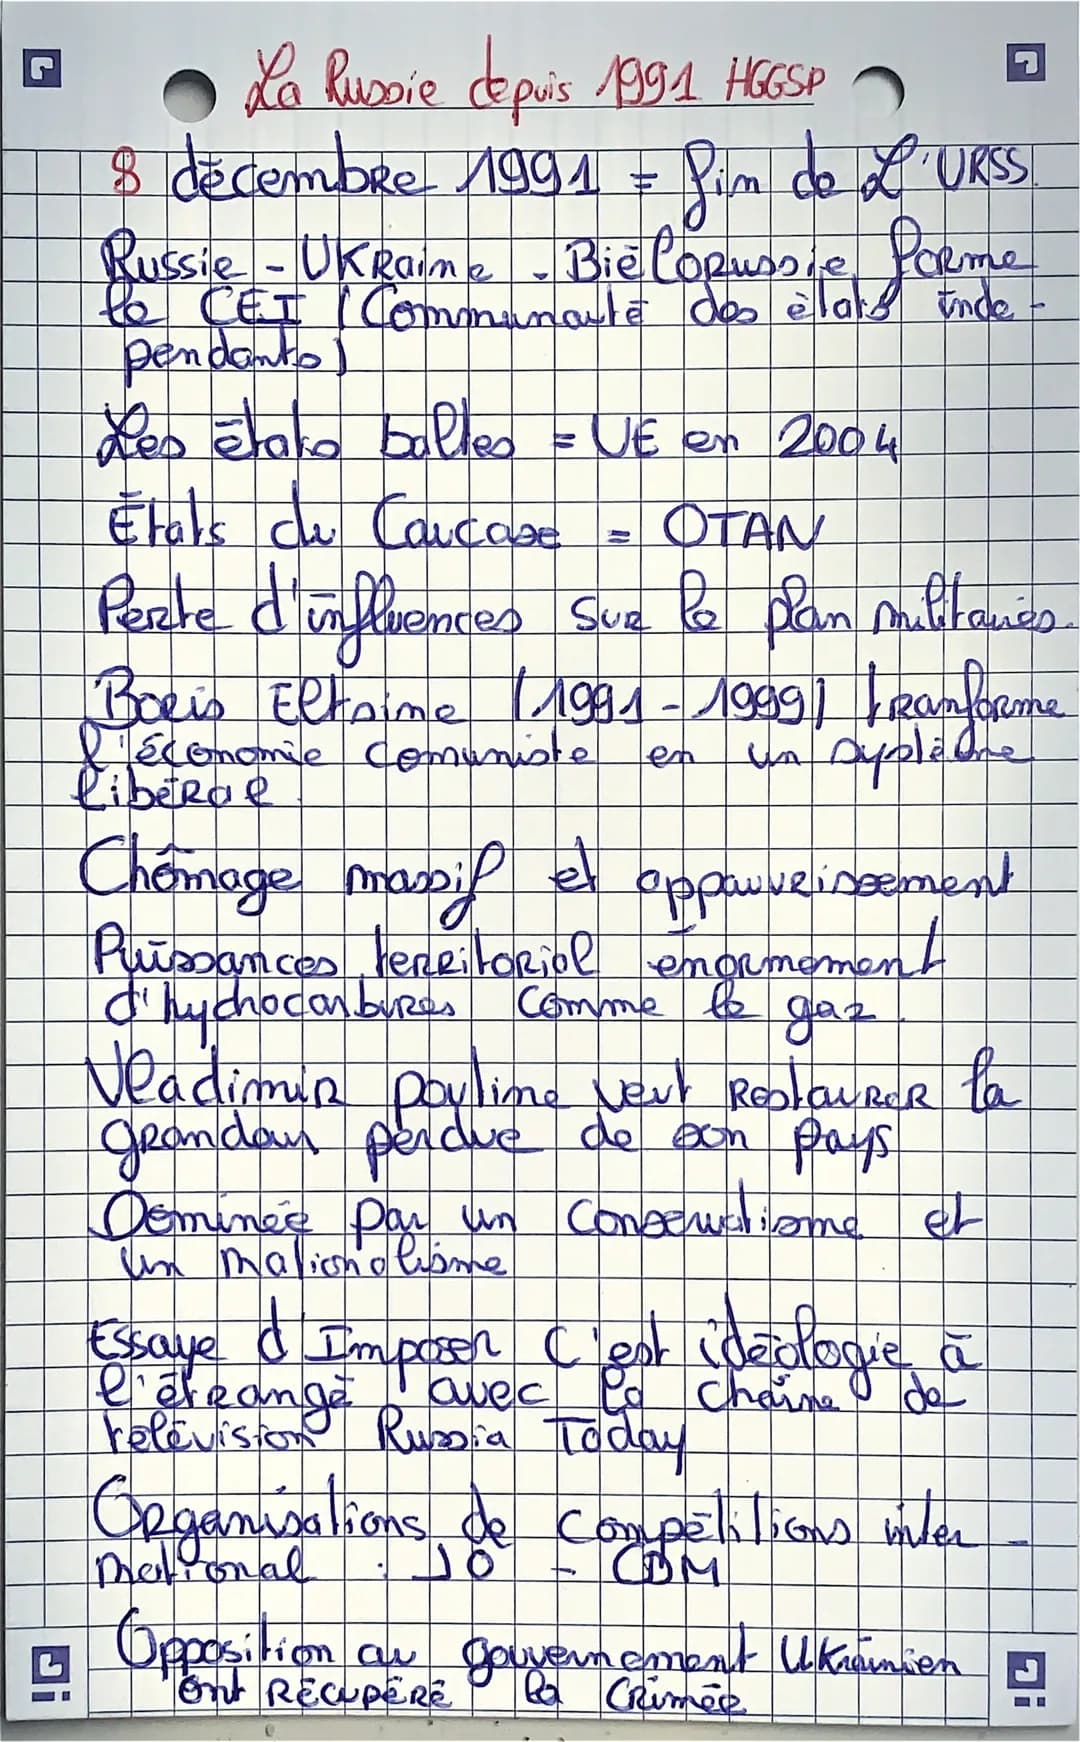 La Russie depuis 1991 HGGSP
8 décembre 1991 = fin de L'URSS.
Russie - UKRaine - Biélorussie forme
le CEI (Communauté des états inde-
pendants)
Les états baltes = UE en 2004
États du Caucase = OTAN
Perte d'influences sur le plan militaires.
Boris Eltsine (1991 - 1999) tranforme
l'économie comuniste en un système
libéral
Chômage massif et appauvrissement
Puissances territorial énormement
d'hydrocarbures comme le gaz.
Vladimir poutine veut Restaurer la
grandeur perdue de son pays
Dominée par un Conservatisme et
un nationalisme
Essaye d'Imposer c'est idéologie à
l'étrangé avec la chaîne de
télévision Russia Today
Organisations de compétitions inter-
national : JO - CDM
Opposition au gouvernement UKrainien
ont RÉCUPÉRÉ la Crimée